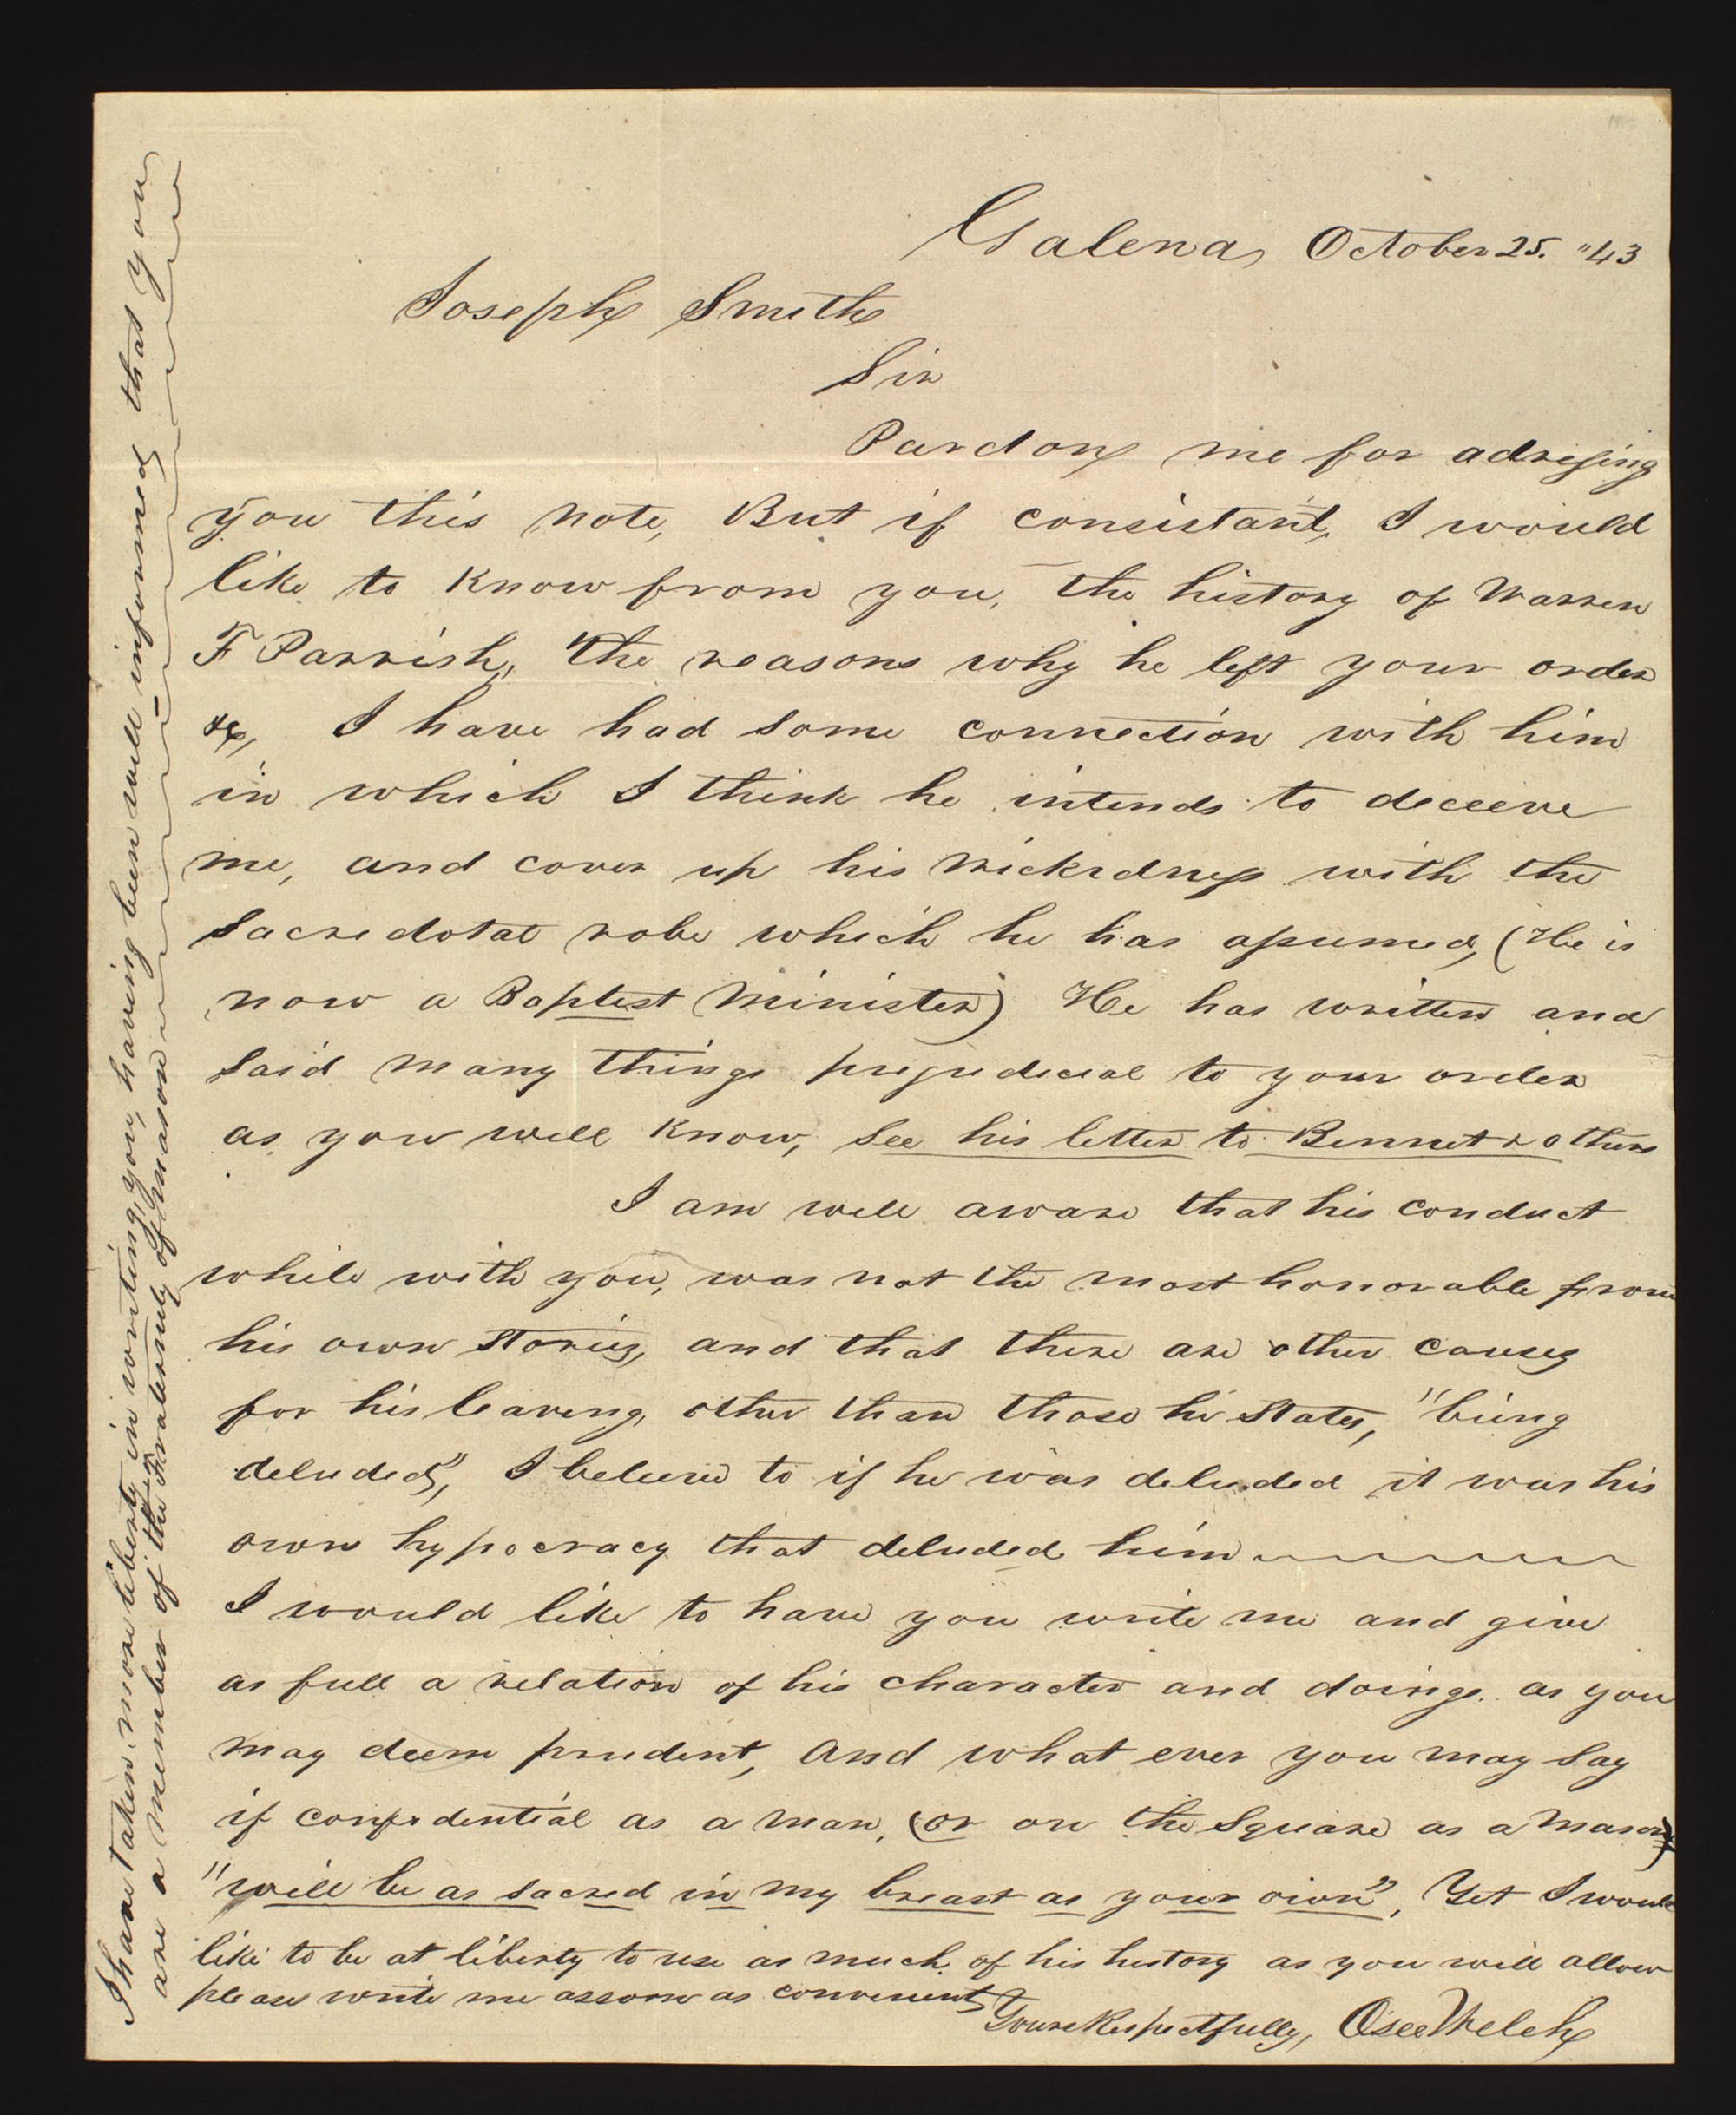 Galena, October 25. "43
Joseph Smith
Sir
Pardon me for adresing
you this note, But if consistant, I would
like to know from you, the history of Warren
F Parrish, the reasons why he left your order
&c, I have had some connection with him
in which I think he intends to deceive
me, and cover up his wickedness with the
sacredotal robe which he has assumed, (He is
now a Baptest Minister) He has written and
said many things prejudicial to your order
as you will know, see his letter to Bennet & others
I am well aware that his conduct
while with you, was not the most honorable from
his own stories, and that there are other causes
for his leaving, other than those he states, "being
deluded", I beleive to if he was deluded it was his
own hypocracy that deluded him
I would like to have you write me and give
as full a relation of his character and doings as you
may deem prudent, and what ever you may say
if confidential as a man, (or on the square as a mason)
"will be as sacred in my breast as your own", Yet I would
like to be at liberty to use as much of his history as you will allow
please write me assoon as convenient
Yours Respectfully, Osee Welch
I have taken more liberty in writing you, having been well informed that you
are a member of the Fraternity of mason